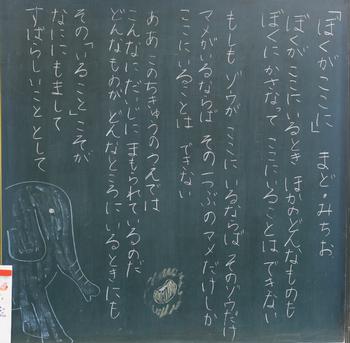 「ぼくがここに」　まど・みちお
ぼくが ここに いるとき ほかの どんなものも
ぼくに かさなって ここにいることは できない
もしも ゾウが ここに いるならば そのゾウだけ
マメが いるならば その一つぶの マメだけしか
ここに いることは できない
ああ このちきゅうの うえでは
こんなに だいじに まもられているのだ
どんなものが どんなところに いるときにも
その「いること」こそが
なににも まして
すばらしいこと として